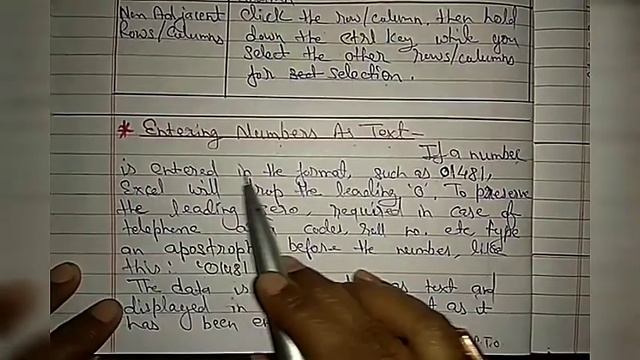 Non Adjacent Click the row/column, then hold
Rows/Columns down the Ctrl Key while you
select the other rows/columns
for selection.
* Entering Numbers As Text -
If a number
is entered in the format, such as 01481,
Excel will drop the leading '0'. To preserve
the leading zero, required in case of
telephone codes, roll no. etc type
an apostroph before the number, like
this: '01481
The data is as text and
displayed in t as it
has been en
P.T.O